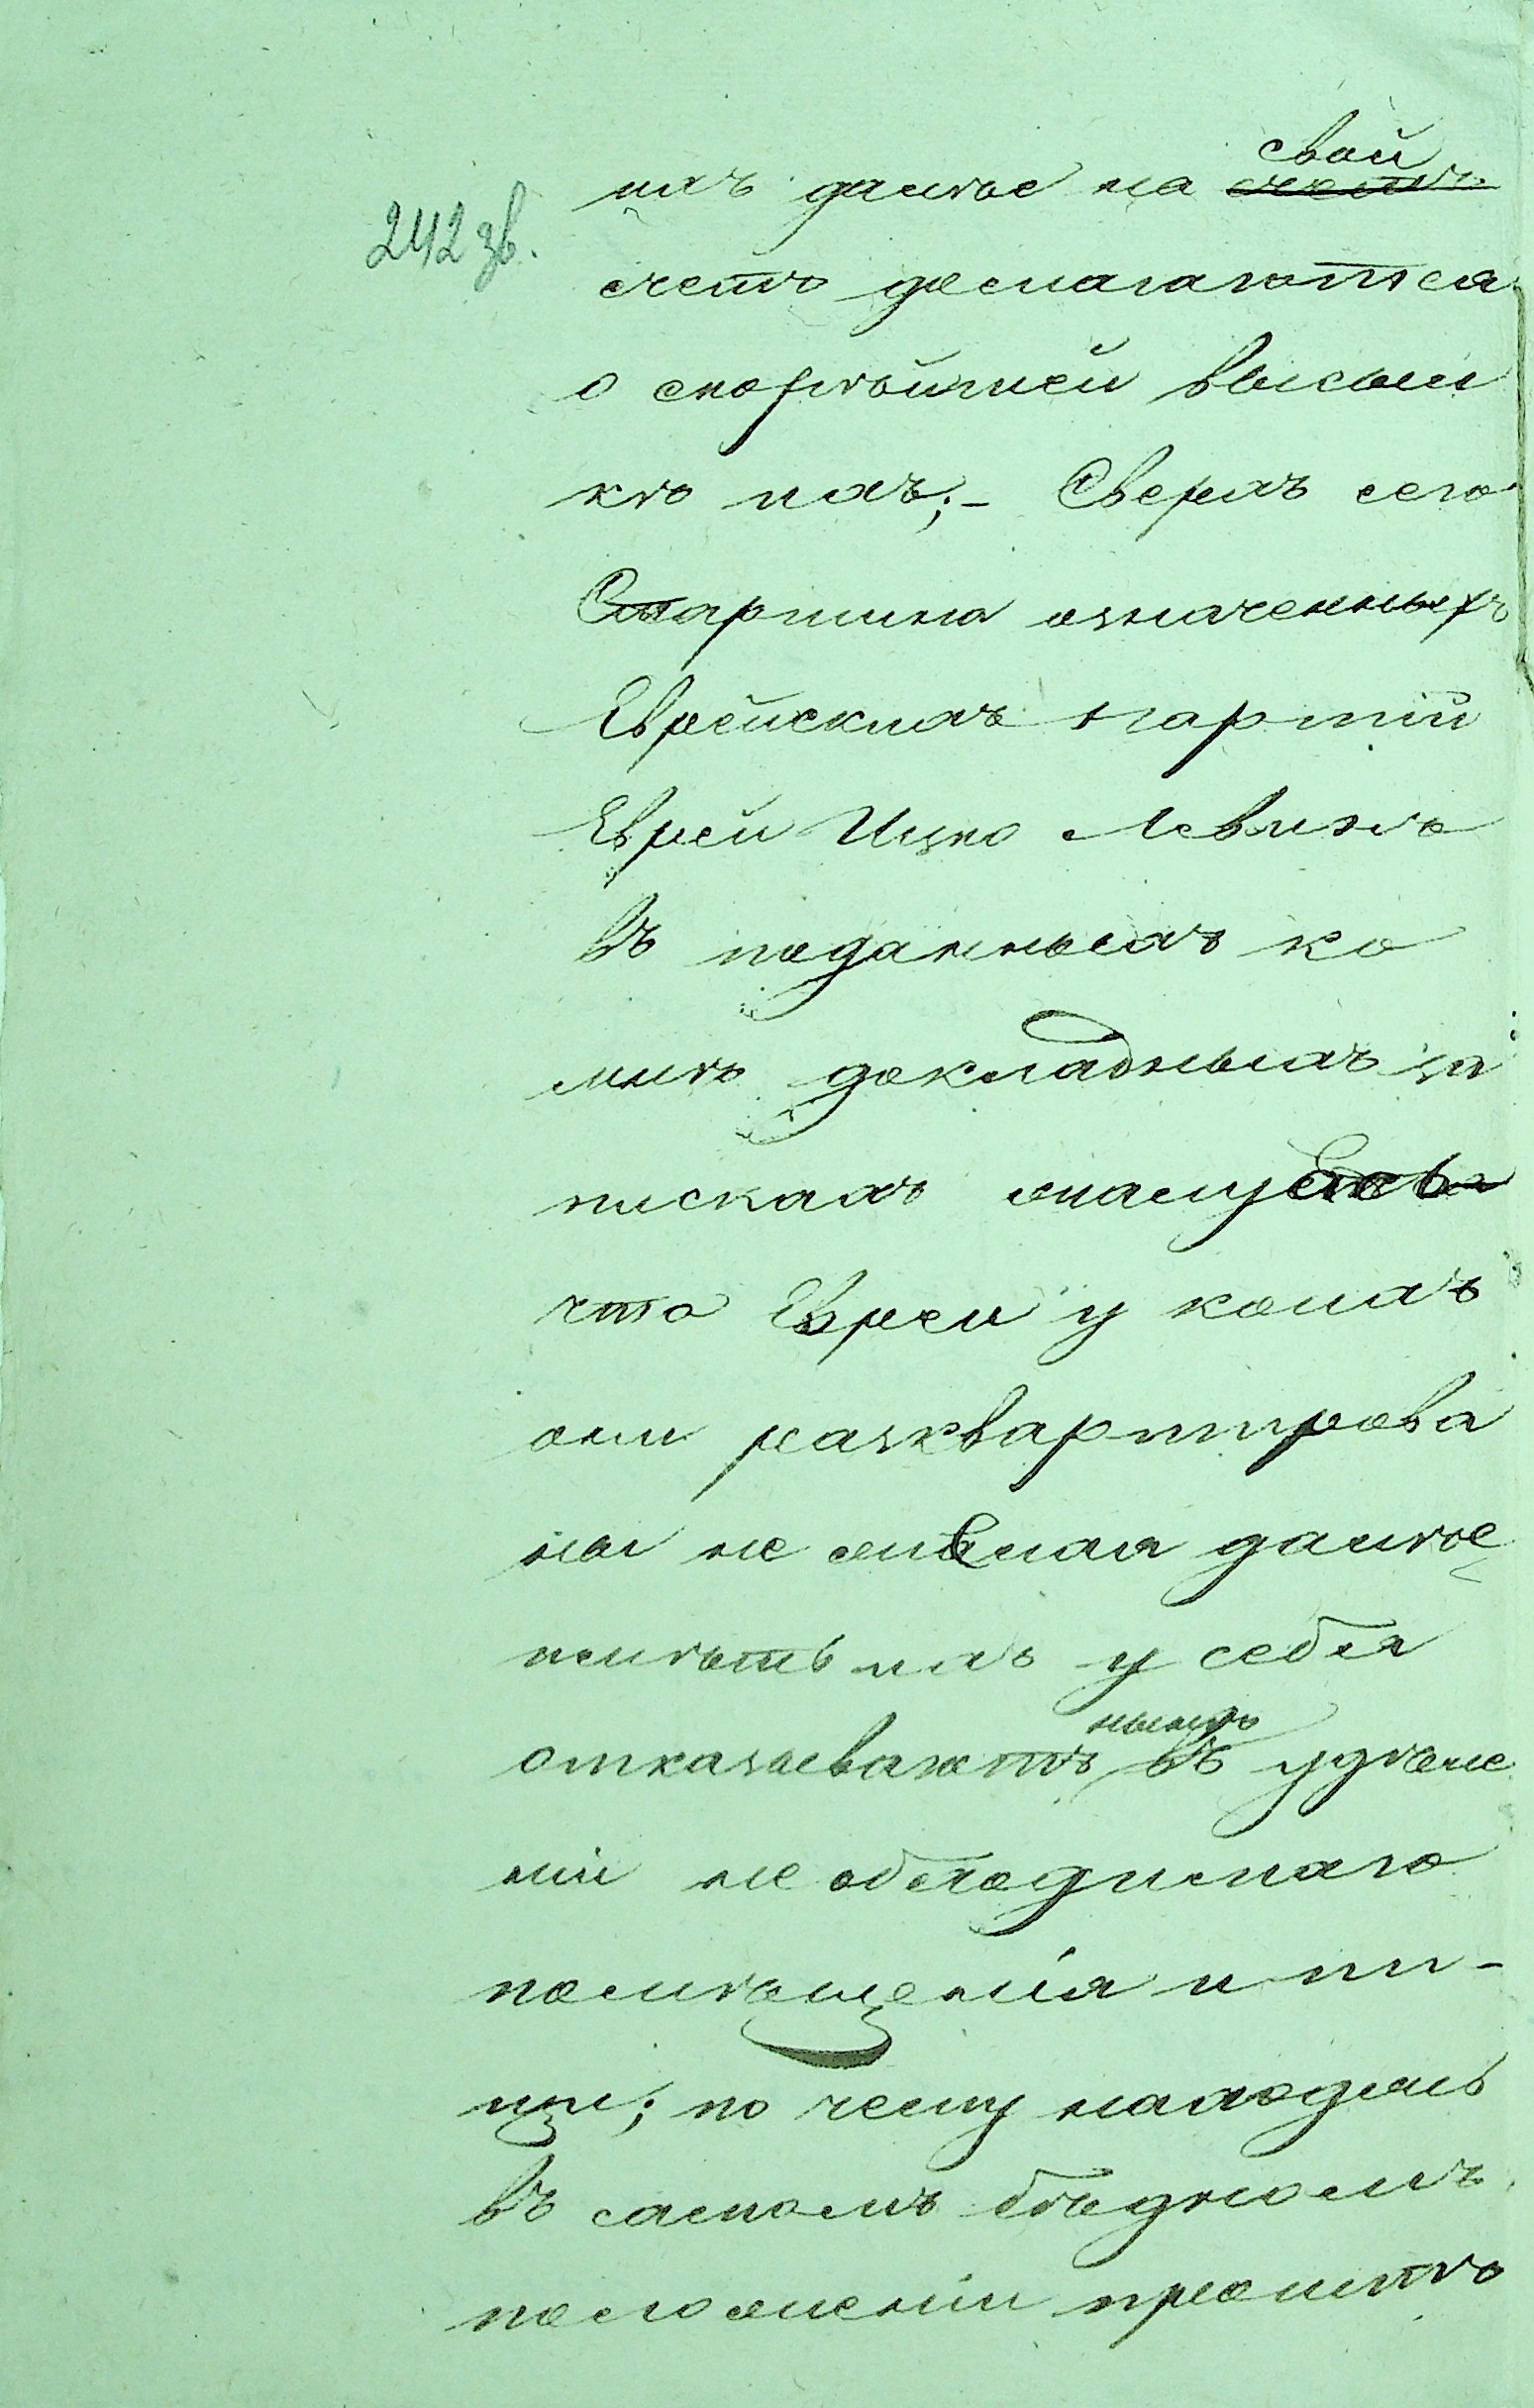 242 зв.
свой
ихъ далѣе на счетъ
счетъ домагаются
о скорѣйшей высылкѣ
кѣ ихъ;- Сверхъ сего
Старшина означенныхъ
Еврейскихъ партій
Еврей Ицко Левинъ
въ поданныхъ ко
мнѣ докладныхъ за
пискахъ
что Евреи у коихъ
они расквартирова
ны не желая далѣе
имѣть ихъ у себя
нынѣ
отказываютъ въ удѣле
ніи необходимаго
помѣщенія и пи-
щи; по чему находясь
въ самомъ бѣдномъ
положеніи проситъ